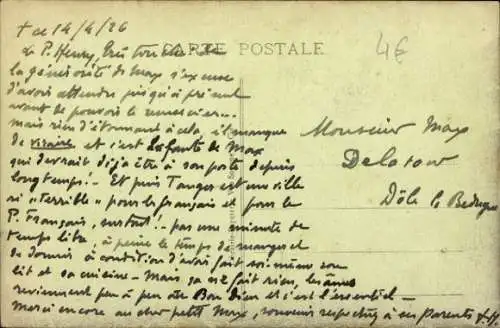 + ce 14/4/26
CARTE POSTALE
4€
Le P. Henry, très touché de
la générosité de Max s'excuse
d'avoir attendre jusqu'à présent
avant de pouvoir le remercier...
mais rien d'étonnant à cela, il manque
de vicaire et c'est la faute de Max
qui devrait déjà être à son poste depuis
longtemps! - Et puis Tanger est une ville
si "terrible" pour les français et pour le
P. Français, surtout! - pas une minute de
temps libre, à peine le temps de manger et
de dormir à condition d'avoir fait soi-même son
lit et sa cuisine - Mais ça ne fait rien, les âmes
reviennent peu à peu au Bon Dieu et c'est l'essentiel -
Merci encore au cher petit Max, souvenir respectueux à ses parents
Monsieur Max
Delatour
Dôle